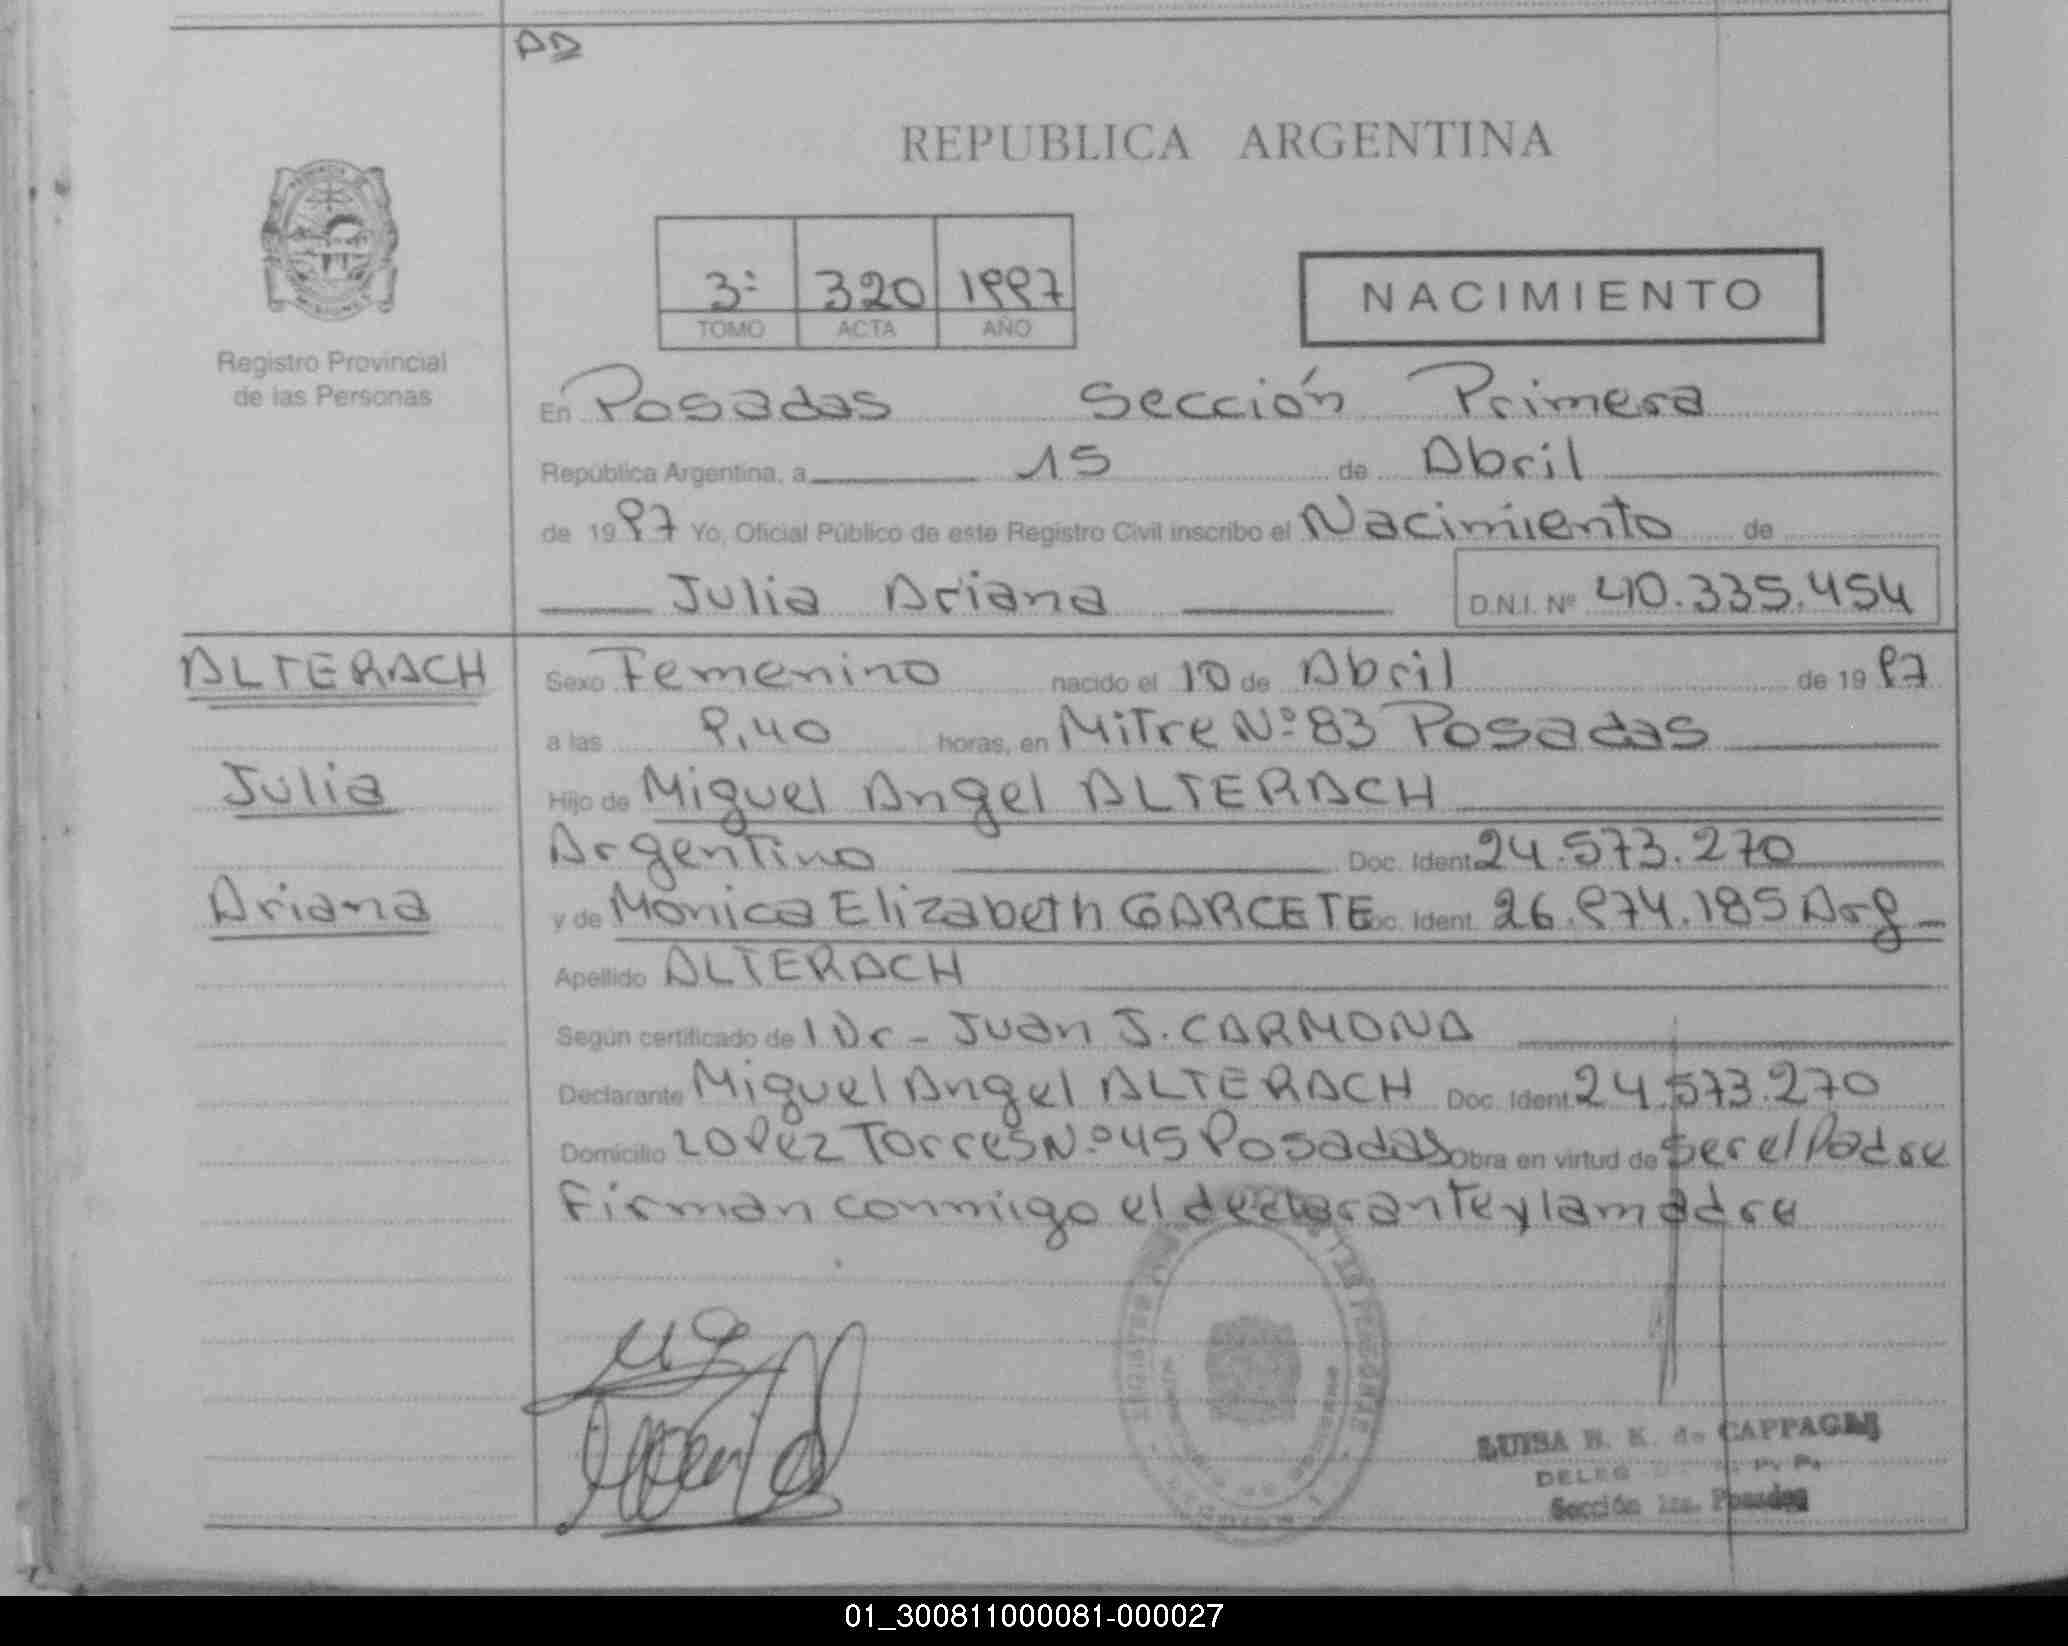 AD
REPUBLICA ARGENTINA
3º 320 1997
TOMO ACTA AÑO
NACIMIENTO
Registro Provincial
de las Personas
En Posadas Sección Primera
República Argentina, a 15 de Abril
de 1997 Yo, Oficial Público de este Registro Civil inscribo el Nacimiento de
Julia Ariana D.N.I. Nº 40.335.454
ALTERACH
Julia
Ariana
Sexo Femenino nacido el 10 de Abril de 1997
a las 9,40 horas, en Mitre Nº 83 Posadas
Hijo de Miguel Angel ALTERACH
Argentino Doc. Ident. 24.573.270
y de Monica Elizabeth GARCETE Doc. Ident. 26.974.185 Arg
Apellido ALTERACH
Según certificado de l Dr - Juan J. CARMONA
Declarante Miguel Angel ALTERACH Doc. Ident. 24.573.270
Domicilio Lopez Torres Nº 45 Posadas Obra en virtud de ser el Padre
Firman conmigo el declarante y la madre
LUISA de
Sección 1ra. Posadas
01_300811000081-000027